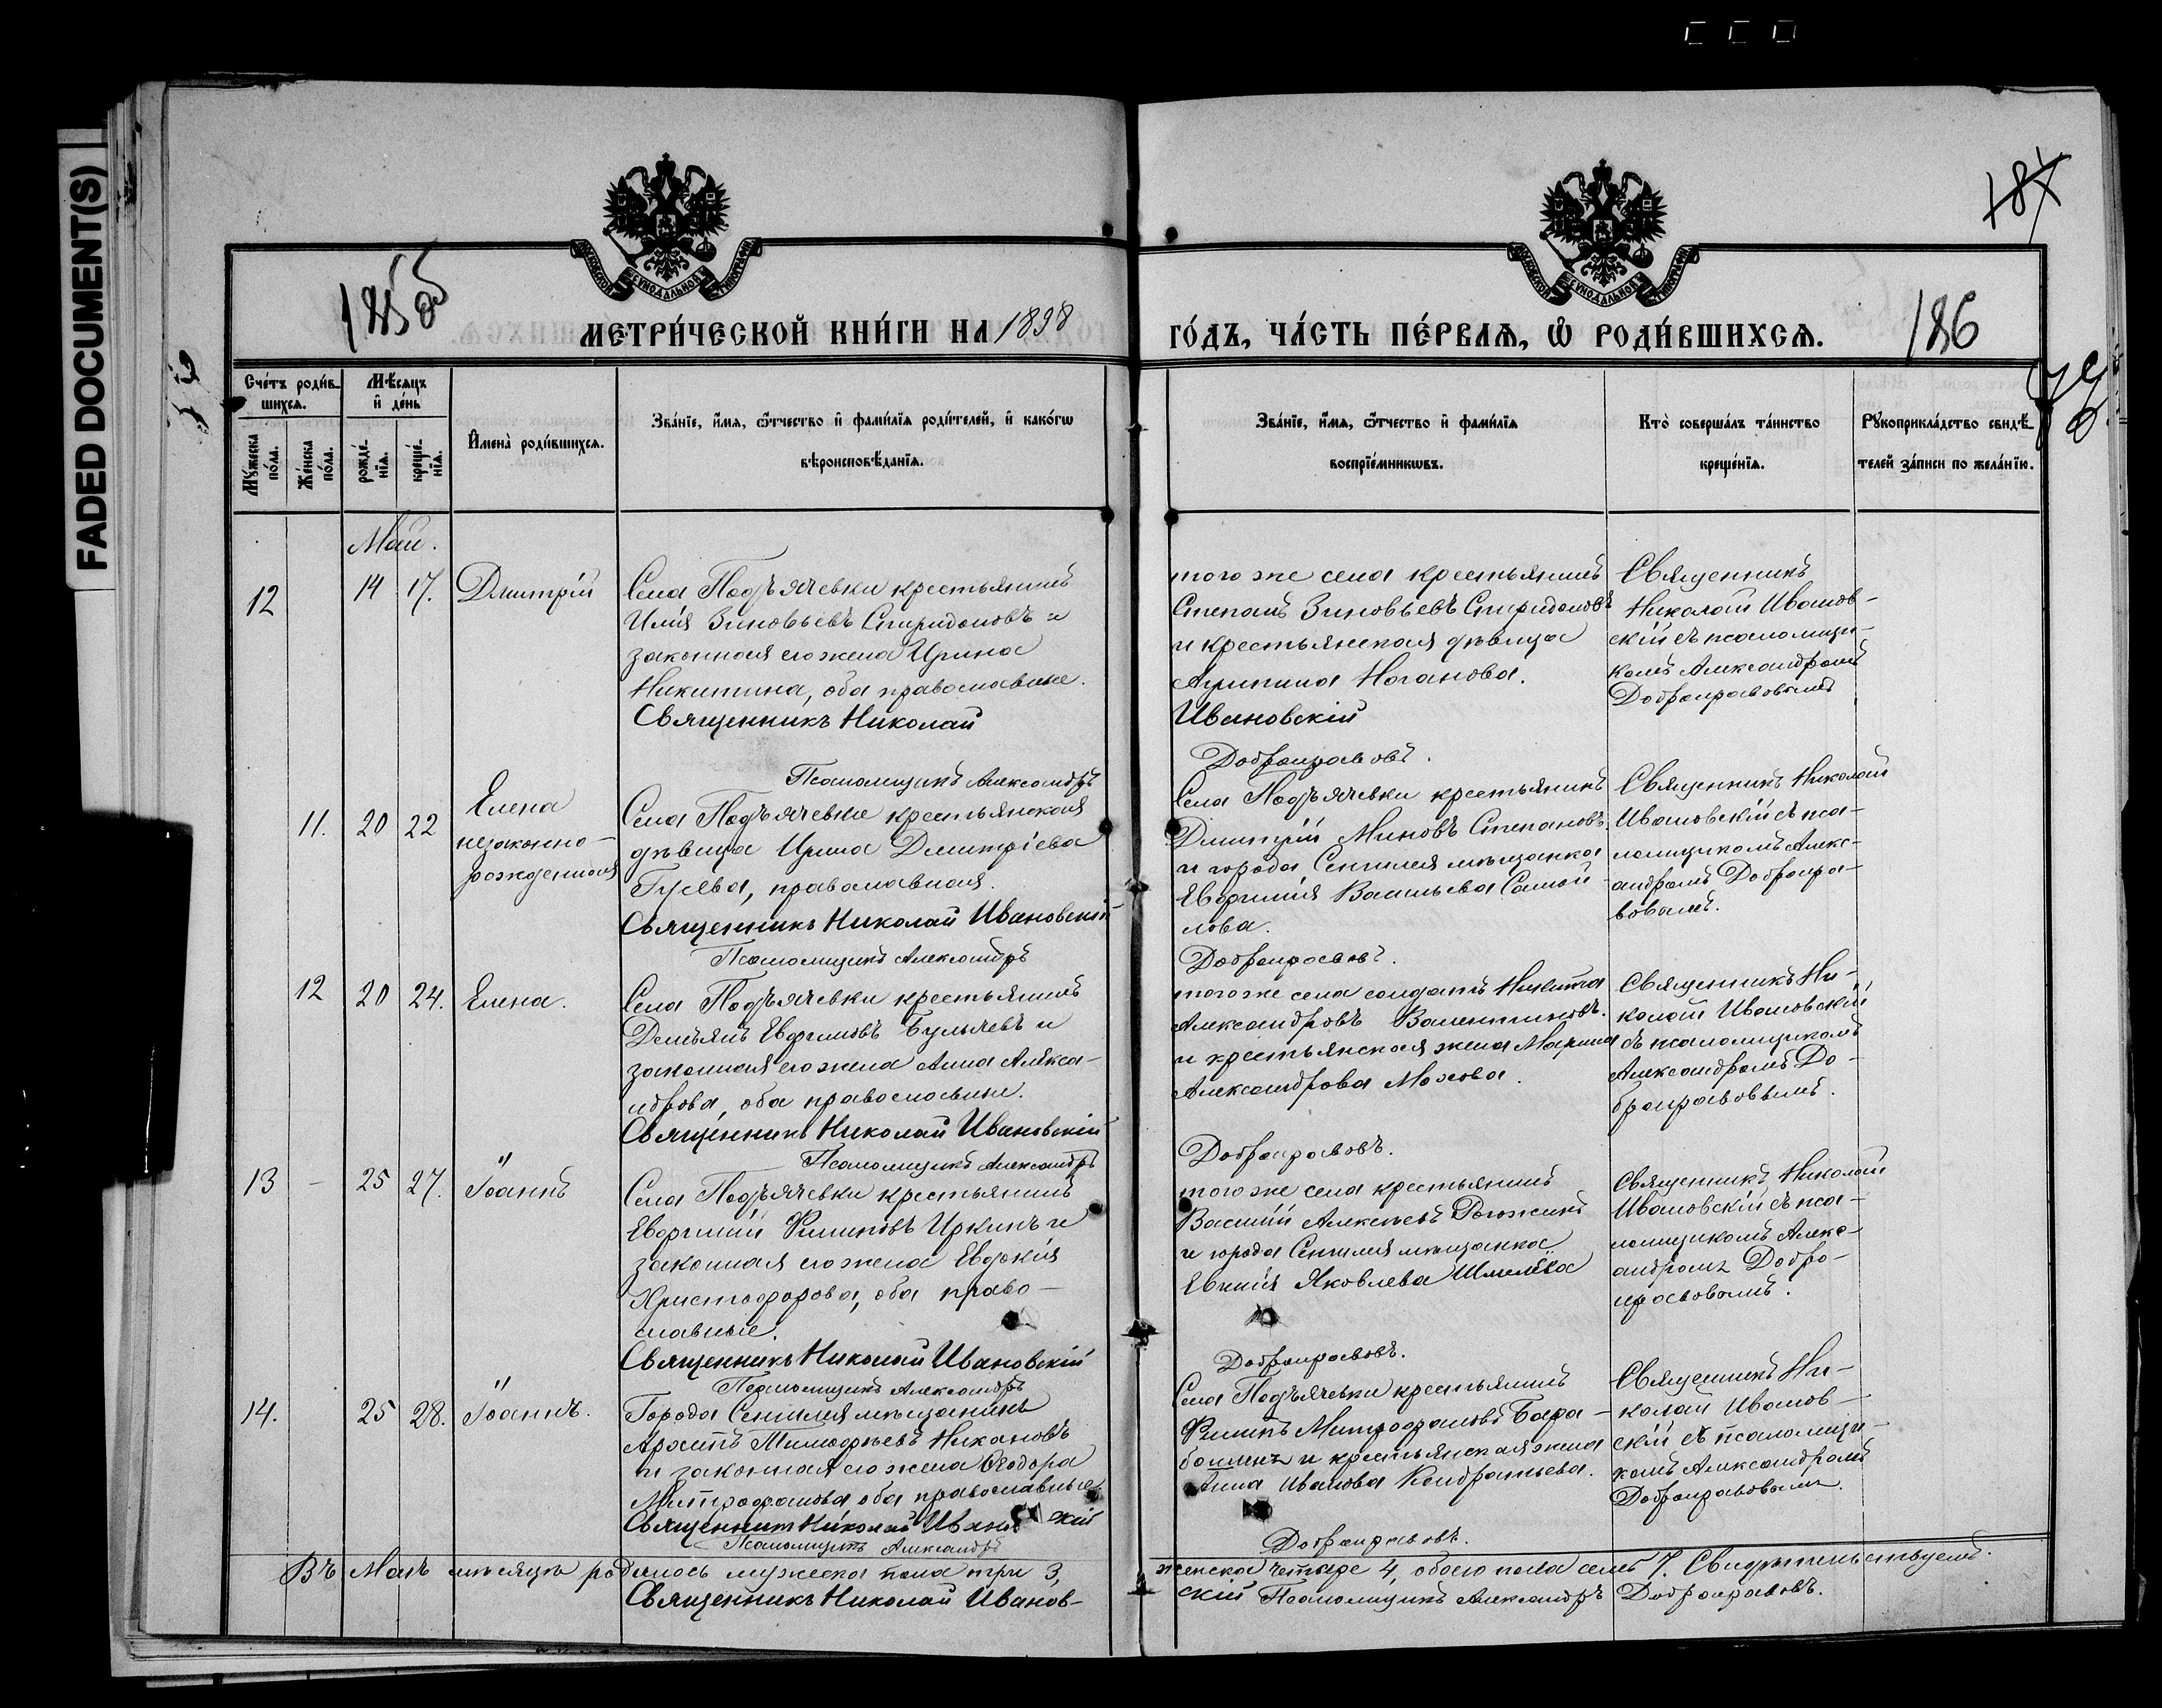 FADED DOCUMENT(S)
187
185об
186
МОСКОВСКОЙ СѴНОДАЛЬНОЙ ТИПОГРАФІИ
МОСКОВСКОЙ СѴНОДАЛЬНОЙ ТИПОГРАФІИ
МЕТРИ́ЧЕСКОЙ КНИ́ГИ НА 1898
ГО́ДЪ, ЧА́СТЬ ПЕ́РВАѦ, Ѡ РОДИ́ВШИХСѦ.
Сче́тъ роди́в-
шихсѧ.
Мꙋжеска по́ла.
Же́нска по́ла.
Мѣ́сѧцъ
и҆ де́нь
рожде́-
нїѧ.
креще́-
нїѧ.
И҆мена̀ роди́вшихсѧ.
Зва́нїе, и҆́мѧ, ѻ҆́тчество и҆ фами́лїѧ роди́телей, и҆ како́гѡ
вѣроисповѣ́данїѧ.
Зва́нїе, и҆́мѧ, ѻ҆́тчество и҆ фами́лїѧ
воспрїе́мникѡвъ.
Кто̀ соверша́лъ та́инство
креще́нїѧ.
Рꙋкоприкла́дство свидѣ́-
телей за́писи по жела́нїю.
Май.
12
14 17.
Дмитрій
Села Подъячевки крестьянинъ
Илія Зиновьевъ Спиридоновъ и
законная его жена Ирина
Никитина, оба православные.
Священникъ Николай
Псаломщикъ Александръ
того же села крестьянинъ
Степанъ Зиновьевъ Спиридоновъ
и крестьянская дѣвица
Агрипина Ноганова.
Ивановскій
Добронравовъ.
Священникъ
Николай Иванов-
скій съ псаломщи-
комъ Александромъ
Добронравовымъ
11. 20 22
Елена
незаконно-
рожденная
Села Подъячевки крестьянская
дѣвица Ирина Димитріева
Гусева, православная.
Священникъ Николай Ивановскій
Псаломщикъ Александръ
Села Подъячевки крестьянинъ
Дмитрій Миновъ Степановъ
и города Сенгилея мѣщанка
Евфимія Васильева Самой-
лова.
Добронравовъ.
Священникъ Николай
Ивановскій съ пса-
ломщикомъ Алекс-
андромъ Добронра-
вовымъ.
12 20 24.
Елена.
Села Подъячевки крестьянинъ
Демьянъ Евфимовъ Булычевъ и
законная его жена Анна Алекса-
ндрова, оба православные.
Священникъ Николай Ивановскій
Псаломщикъ Александръ
того же села солдатъ Никита
Александровъ Валентиновъ.
и крестьянская жена Марина
Александрова Мохова.
Добронравовъ.
Священникъ Ни-
колай Ивановскій
съ псаломщикомъ
Александромъ До-
бронравовымъ.
13 - 25 27.
Іоаннъ
Села Подъячевки крестьянинъ
Евфимій Филиповъ Иркинъ и
законная его жена Евдокія
Христофорова, оба право-
славные.
Священникъ Николай Ивановскій
Псаломщикъ Александръ
того же села крестьянинъ
Василій Алексѣевъ Рогожинъ
и города Сенгилея мѣщанка
Евфимія Яковлева Шмелёва
Добронравовъ.
Священникъ Николай
Ивановскій съ пса-
ломщикомъ Алекс-
андромъ Добро-
нравовымъ.
14. 25 28.
Іоаннъ.
Города Сенгилея мѣщанинъ
Архипъ Тимофѣевъ Никановъ
и законная его жена Ѳеодора
Митрофанова оба православные
Священникъ Николай Иван скій
Псаломщикъ Александръ
Села Подъячевки крестьянинъ
Филипъ Митрофановъ Бара-
бошинъ и крестьянская жена
Анна Иванова Кондратьева.
Добронравовъ.
Священникъ Ни-
колай Иванов-
скій съ псаломщи-
комъ Александромъ
Добронравовымъ.
Въ Маѣ мѣсяцѣ родилось мужеска пола три 3, женска четыре 4, обоего пола семь 7. Свидѣтельствуемъ.
Священникъ Николай Иванов-
скій Псаломщикъ Александръ Добронравовъ.